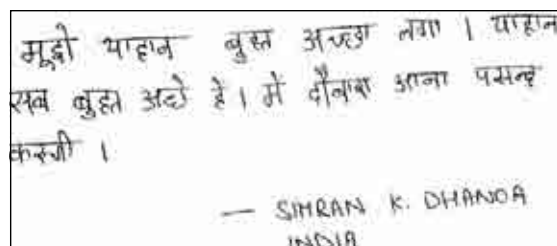 मूझे याहान बुहत अच्छा लगा । याहान
सब बुहत अछे है । में दौबारा आना पसन्द
करुगी ।
— SIMRAN K. DHANOA
INDIA